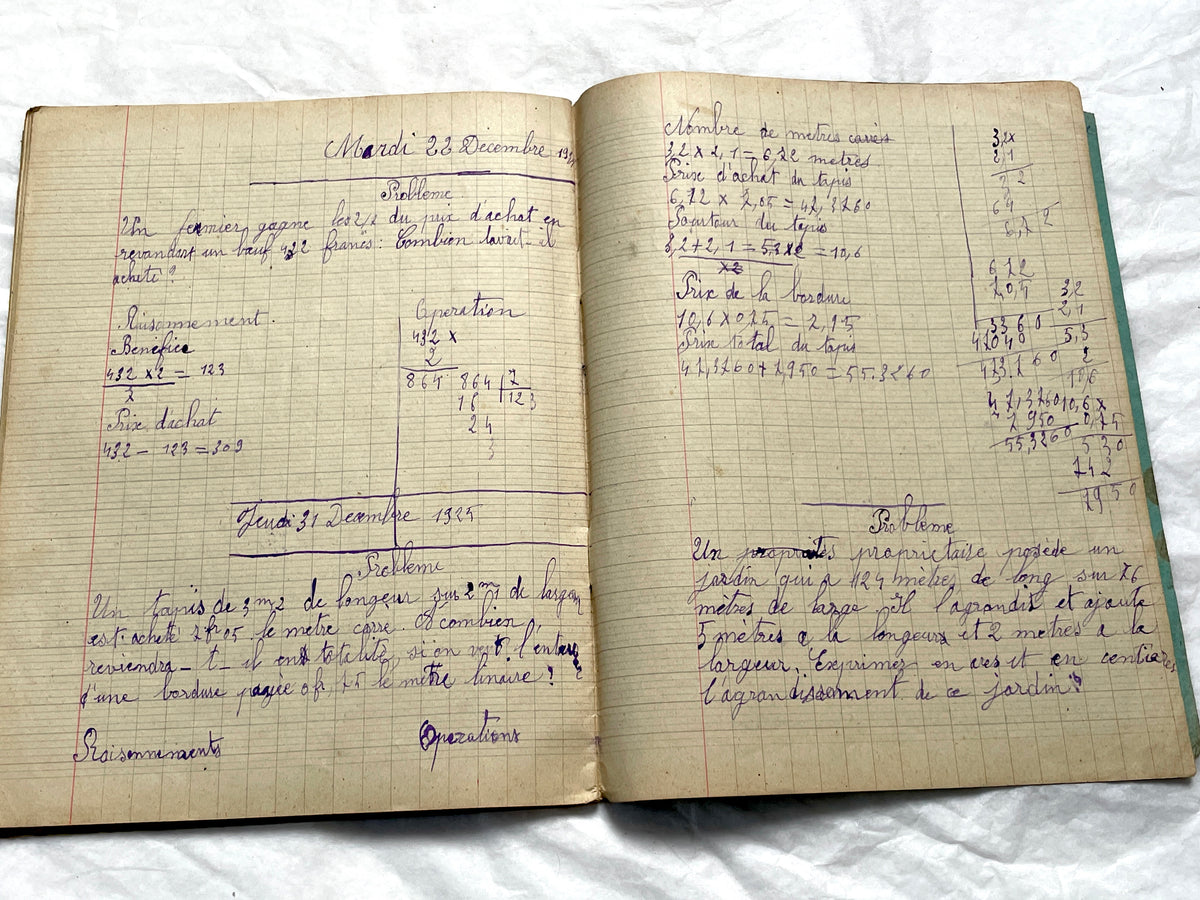 Mardi 22 Décembre 192
Probleme
Un fermier gagne les 2/7 du prix d'achat en
revandant un bœuf 432 francs: Combien l'avait-il
acheté?
Raisonnement.
Operation
Benefice
432 x 2 = 123
7
432 x
2
864
864 7
16 123
24
3
Prix d'achat
432 - 123 = 309
Jeudi 31 Decembre 1925
Probleme
Un tapis de 3m,2 de longeur sur 2m1 de largeur
est acheté 7fr 05 le metre carre. A combien
reviendra-t-il en totalité, si on veut l'entourer
d'une bordure payée 0f,75 le metre linaire?
Raisonnements
Operations
Nombre de metres carrés
3,2 x 2,1 = 6,72 metres
Prix d'achat du tapis
6,72 x 7,05 = 47,3760
Pourtour du tapis
3,2 + 2,1 = 5,3 x 2 = 10,6
x2
Prix de la bordure
10,6 x 0,75 = 7,95
Prix total du tapis
47,3760 + 7,950 = 55.3260
3,2 x
2,1
3 2
6 4
6,7 2
6 7 2
7,0 5
3 3 6 0
4 7 0 4 0
473.7 60
3,2
2,1
5,3
2
10,6
47,3760
7 950
55,3260
10,6 x
0,75
5 3 0
7 4 2
7950
Probleme
Un propriétaire posède un
jardin qui a 124 mètres de long sur 76
mètres de large. Il l'agrandit et ajoute
5 mètres a la longeur et 2 metres a la
largeur. Exprimez en ares et en centiares
l'agrandissement de ce jardin?